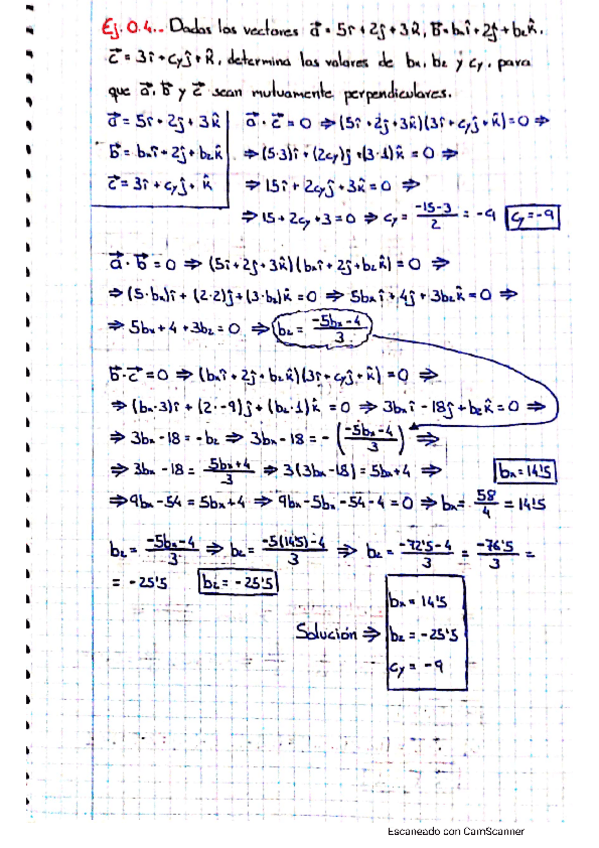 Ej. 0.4.- Dados los vectores a⃗ = 5î + 2ĵ + 3k̂, b⃗ = bxî + 2ĵ + bzk̂,
c⃗ = 3î + cyĵ + k̂, determina los valores de bx, bz y cy, para
que a⃗, b⃗ y c⃗ sean mutuamente perpendiculares.
a⃗ = 5î + 2ĵ + 3k̂
b⃗ = bxî + 2ĵ + bzk̂
c⃗ = 3î + cyĵ + k̂
a⃗ · c⃗ = 0 ⇒ (5î + 2ĵ + 3k̂)(3î + cyĵ + k̂) = 0 ⇒
⇒ (5·3)î + (2cy)ĵ + (3·1)k̂ = 0 ⇒
⇒ 15î + 2cyĵ + 3k̂ = 0 ⇒
⇒ 15 + 2cy + 3 = 0 ⇒ cy = (-15-3)/2 = -9 cy = -9
a⃗ · b⃗ = 0 ⇒ (5î + 2ĵ + 3k̂)(bxî + 2ĵ + bzk̂) = 0 ⇒
⇒ (5·bx)î + (2·2)ĵ + (3·bz)k̂ = 0 ⇒ 5bxî + 4ĵ + 3bzk̂ = 0 ⇒
⇒ 5bx + 4 + 3bz = 0 ⇒ bz = (-5bx-4)/3
b⃗ · c⃗ = 0 ⇒ (bxî + 2ĵ + bzk̂)(3î + cyĵ + k̂) = 0 ⇒
⇒ (bx·3)î + (2·-9)ĵ + (bz·1)k̂ = 0 ⇒ 3bxî - 18ĵ + bzk̂ = 0 ⇒
⇒ 3bx - 18 = -bz ⇒ 3bx - 18 = -((-5bx-4)/3) ⇒
⇒ 3bx - 18 = (5bx+4)/3 ⇒ 3(3bx-18) = 5bx+4 ⇒ bx = 14'5
⇒ 9bx - 54 = 5bx + 4 ⇒ 9bx - 5bx - 54 - 4 = 0 ⇒ bx = 58/4 = 14'5
bz = (-5bx-4)/3 ⇒ bz = (-5(14'5)-4)/3 ⇒ bz = (-72'5-4)/3 = (-76'5)/3 =
= -25'5 bz = -25'5
Solución ⇒
bx = 14'5
bz = -25'5
cy = -9
Escaneado con CamScanner